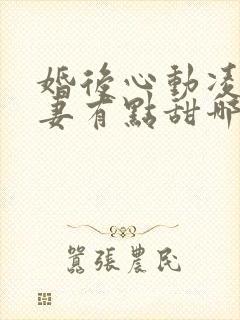 婚後心動凌
妻有點甜哪
囂張農民